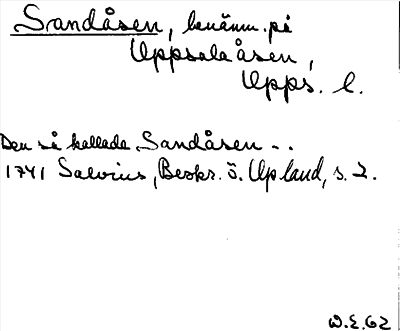 Sandåsen, benämn. på
Uppsalaåsen,
Upps. l.
Den så kallade Sandåsen - -
1741 Salvius, Beskr. ö. Upland, s. 2.
W.E.62